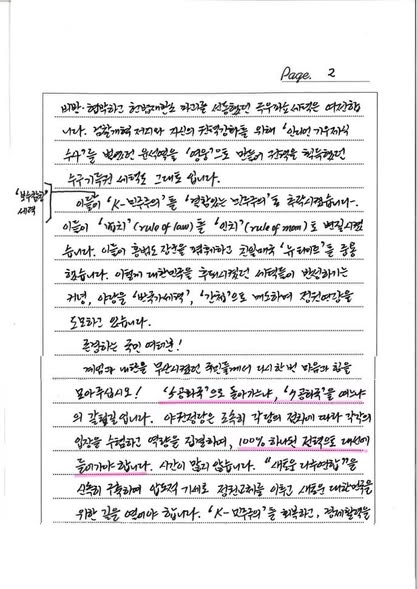 Page. 2
비방·협박하고 헌법재판소 파괴를 선동했던 극우파쇼세력은 여전합
니다. 검찰개혁 저지와 자신의 권력강화를 위해 '인디언 기우제식
수사'를 벌였던 윤석열을 '영웅'으로 만들어 권력을 획득했던
수구기득권 세력도 그대로 입니다.
이들이 'K-민주주의'를 '결함있는 민주주의'로 추락시켰습니다.
이들이 '법치'(rule of law)를 '인치'(rule of man)로 변질시켰
습니다. 이들이 홍범도 장군을 폄훼하고 친일매국 '뉴라이트'를 중용
했습니다. 이렇게 대한민국을 후퇴시켰던 세력들이 반성하기는
커녕, 야당을 '반국가세력', '간첩'으로 매도하며 정권연장을
도모하고 있습니다.
존경하는 국민 여러분!
계엄과 내란을 무산시켰던 주인들께서 다시 한 번 마음과 힘을
모아주십시오! '5공화국'으로 돌아가느냐, '7공화국'을 여느냐
의 갈림길입니다. 야권정당은 조속히 각 당의 절차에 따라 각각의
입장을 수렴하고 역량을 집결하여, 100% 하나된 전력으로 대선에
들어가야 합니다. 시간이 많지 않습니다. "새로운 다수연합"을
신속히 구축하며 압도적 기세로 정권교체를 이루고 새로운 대한민국을
위한 길을 열어야 합니다. 'K-민주주의'를 회복하고, 경제활력을
세력